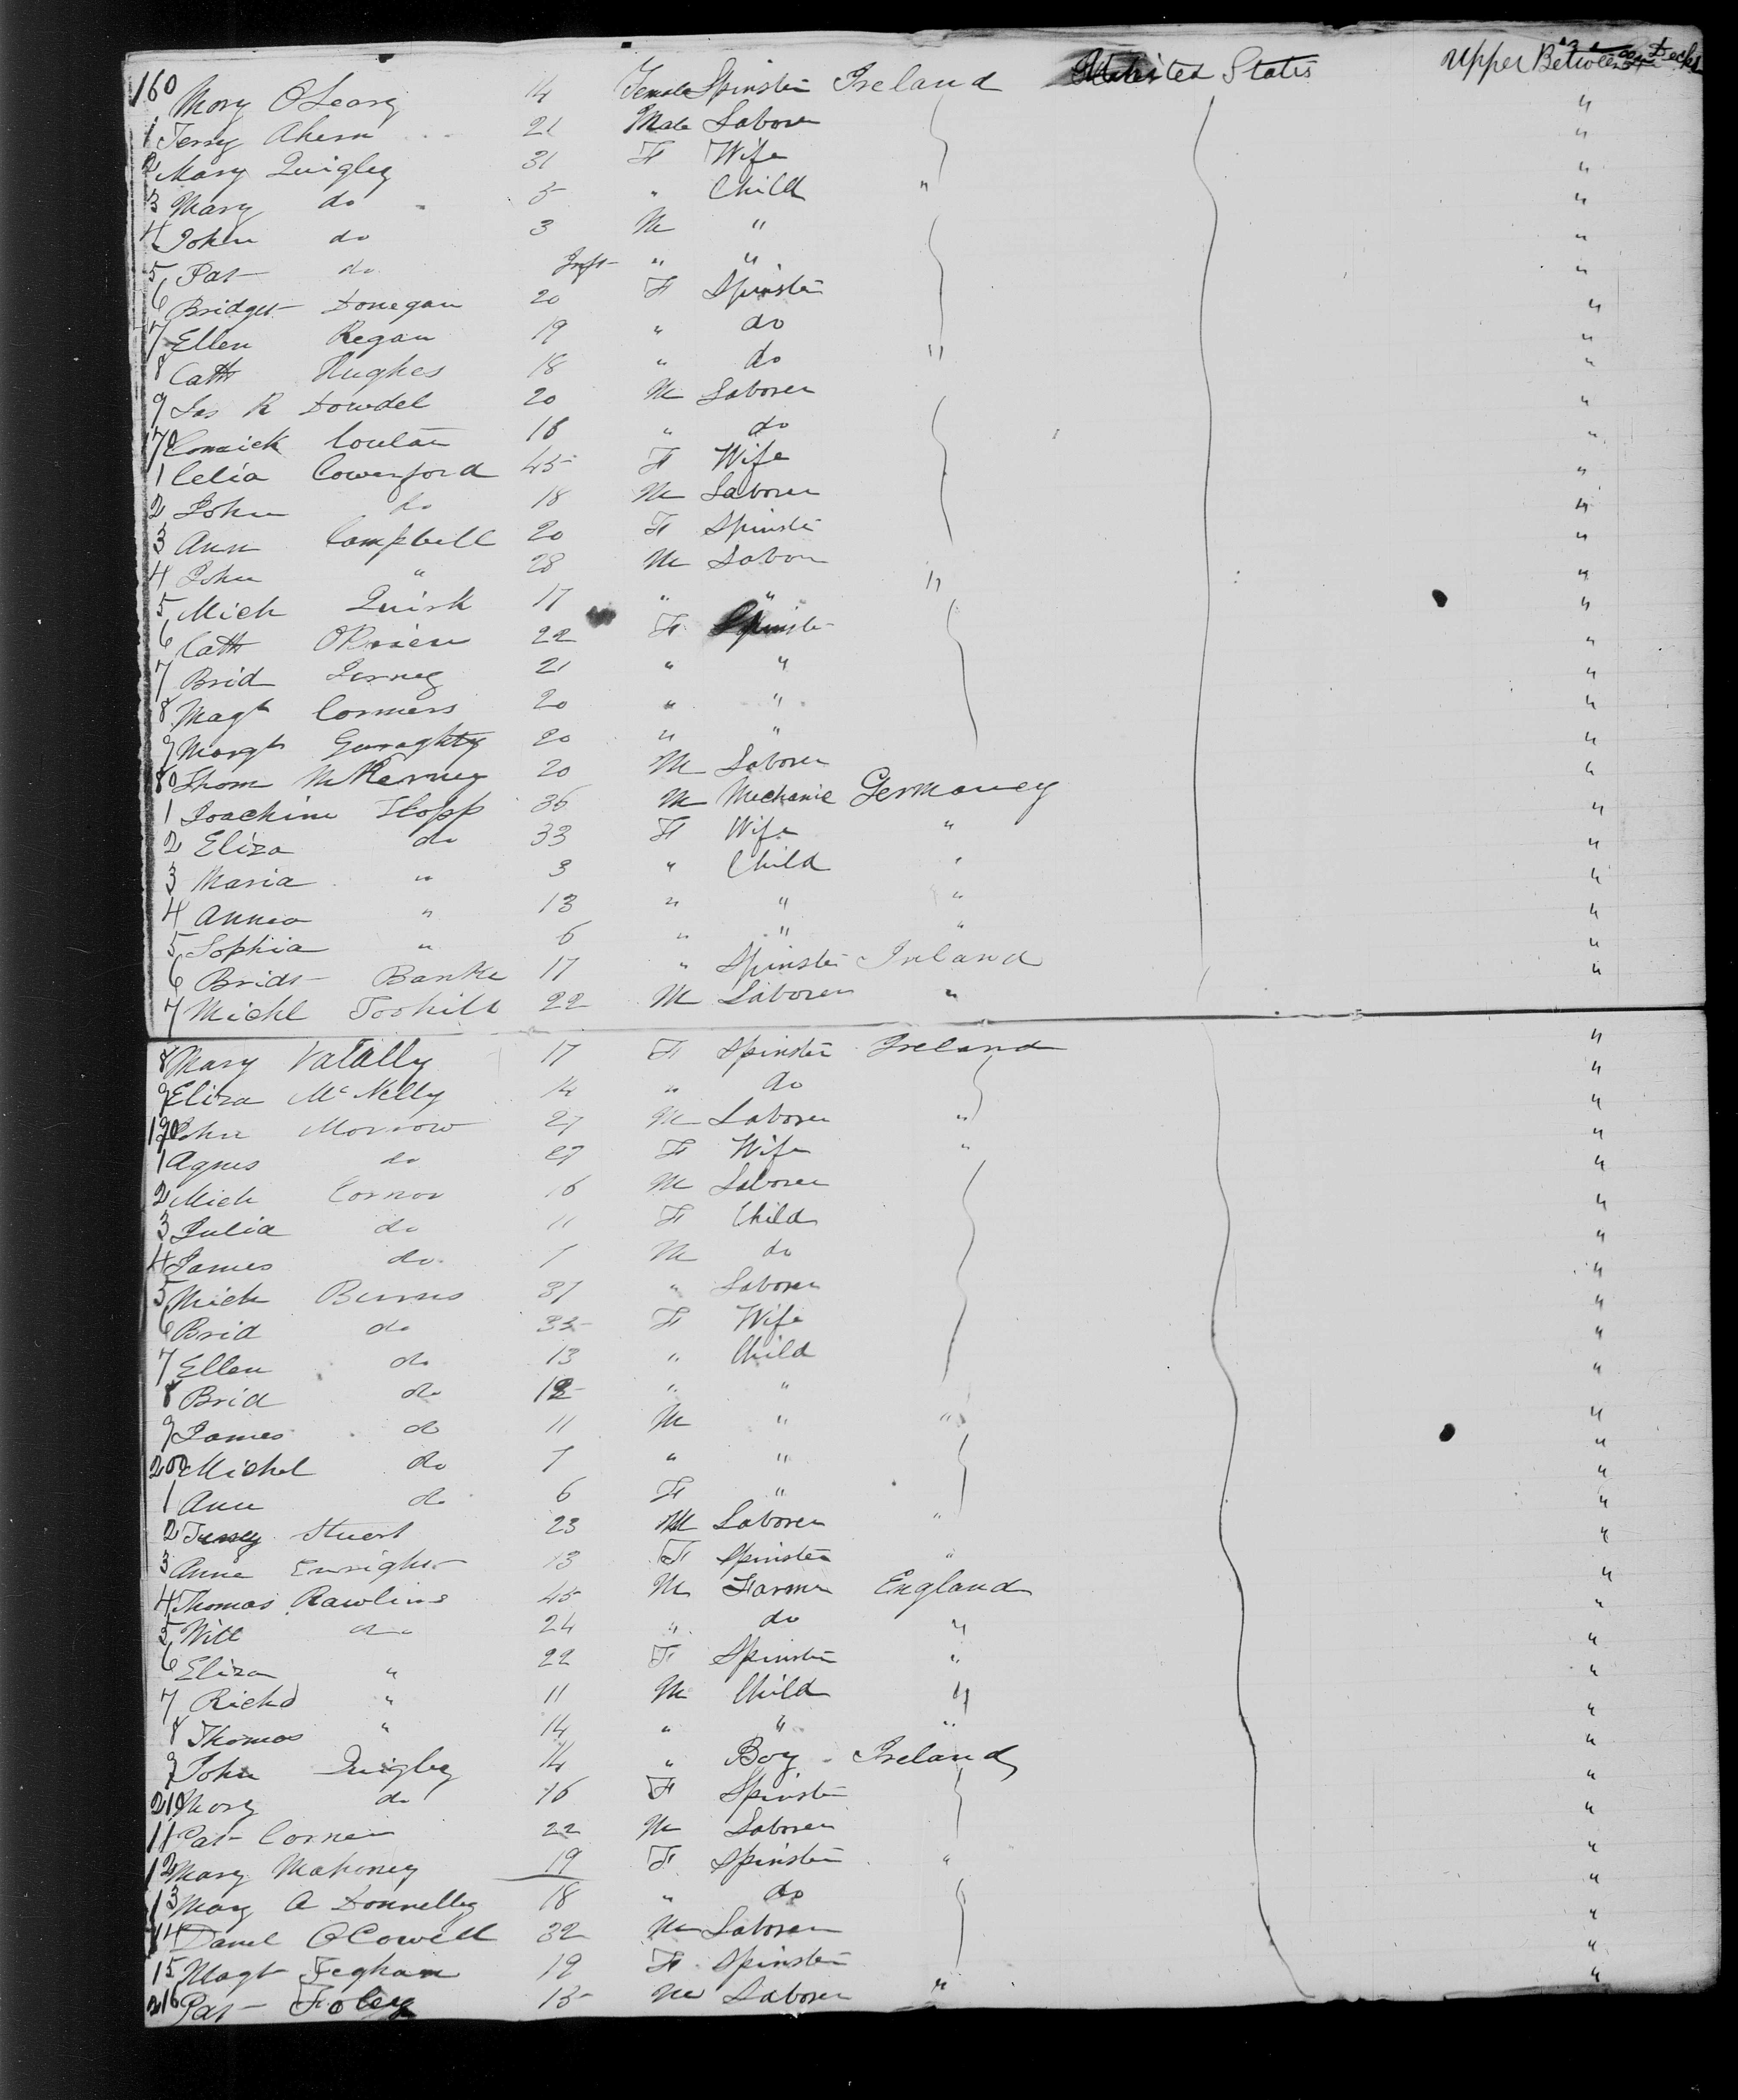 160 Mary OLeary 14 Female Spinster Ireland United States Upper Between Decks
1 Terry Ahern 21 Male Laborer "
2 Mary Quigley 31 F Wife "
3 Mary do 5 " Child " "
4 John do 3 M " "
5 Pat do Inft " " "
6 Bridget Donegan 20 F Spinster "
7 Ellen Regan 19 " do "
8 Cath Hughes 18 " do " "
9 Jas R Dowdel 20 M Laborer "
70 18 " do "
1 Celia Cowenford 45 F Wife "
2 John do 18 M Laborer "
3 Ann Campbell 20 F Spinster "
4 John " 28 M Labor "
5 Mich Quirk 17 " " " "
6 Cath OBrien 22 F Spinster "
7 Brid 21 " " "
8 Magt Connors 20 " " "
9 Margt Garaghty 20 " " "
80 Thom McKerney 20 M Laborer "
1 Joachim Stopp 36 M Mechanic Germaney "
2 Eliza do 33 F Wife " "
3 Maria " 3 " Child " "
4 Annea " 13 " " " "
5 Sophia " 6 " " " "
6 Bridt Banke 17 " Spinster Ireland "
7 Michl Toohill 22 M Laborer " "
8 Mary 17 F Spinster Ireland "
9 Eliza McNelly 14 " do "
190 John Morrow 27 M Laborer " "
1 Agnes do 27 F Wife " "
2 Mich Connor 16 M Laborer "
3 Julia do 11 F Child "
4 James do 7 M do "
5 Mich Burns 37 " Laborer "
6 Brid do 35 F Wife "
7 Ellen do 13 " Child "
8 Brid do 12 " " "
9 James do 11 M " " "
200 Michel do 7 " " "
1 Ann do 6 F " "
2 Stuert 23 M Laborer " "
3 Anne Enright 13 F Spinster " "
4 Thomas Rawlins 45 M Farmer England "
5 Will do 24 " do " "
6 Eliza " 22 F Spinster " "
7 Richd " 11 M Child " "
8 Thomas " 14 " " " "
9 John Quigley 14 " Boy Ireland "
210 Mary do 16 F Spinster "
11 Pat Conner 22 M Laborer "
12 Mary Mahoney 19 F Spinster " "
13 Mary A Donnelly 18 " do "
14 Danel OConell 32 M Laborer "
15 Magt Feghan 19 F Spinster "
216 Pat Foley 15 M Laborer " "